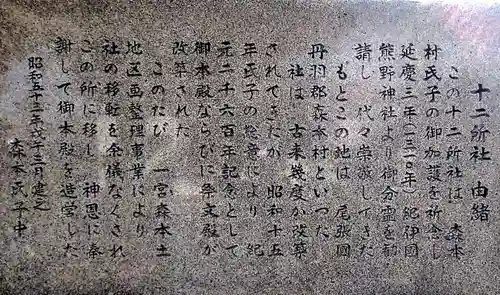 十二所社 由緒
この十二所社は 森本
村氏子の御加護を祈念し
延慶三年(一三一〇年)紀伊国
熊野神社より御分霊を勧
請し 代々崇敬してきた
もとこの地は 尾張国
丹羽郡森本村といった
社は 古来幾度か改築
されてきたが 昭和十五
年氏子の総意により 紀
元二千六百年記念として
御本殿ならびに年文殿が
改築された
このたび 一宮森本土
地区画整理事業により
社の移転を余儀なくされ
この所に移し 神恩に奉
謝して御本殿を造営した
昭和五十三年戊午三月建之
森本氏子中